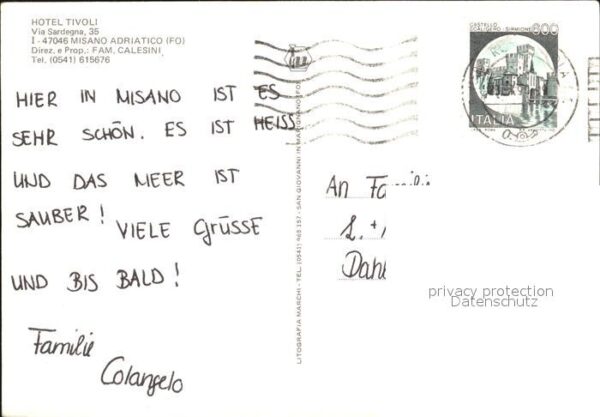 HOTEL TIVOLI
Via Sardegna, 35
I - 47046 MISANO ADRIATICO (FO)
Direz. e Prop.: FAM. CALESINI
Tel. (0541) 615676
CASTELLO
SCALIGERO - SIRMIONE
600
ITALIA
HIER IN MISANO IST ES
SEHR SCHÖN. ES IST HEISS
UND DAS MEER IST
SAUBER! VIELE GRÜSSE
UND BIS BALD!
Familie
Colangelo
LITOGRAFIA MARCHI - TEL. (0541) 963 157 - SAN GIOVANNI IN MARIGNANO (FO)
An
privacy protection
Datenschutz